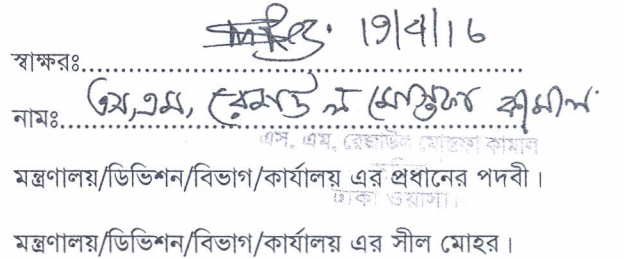 স্বাক্ষরঃ 19/4/16
নামঃ এস, এম, রেজাউল মোস্তফা কামাল
এস, এম, রেজাউল মোস্তফা কামাল
মন্ত্রণালয়/ডিভিশন/বিভাগ/কার্যালয় এর প্রধানের পদবী।
ঢাকা ওয়াসা।
মন্ত্রণালয়/ডিভিশন/বিভাগ/কার্যালয় এর সীল মোহর।